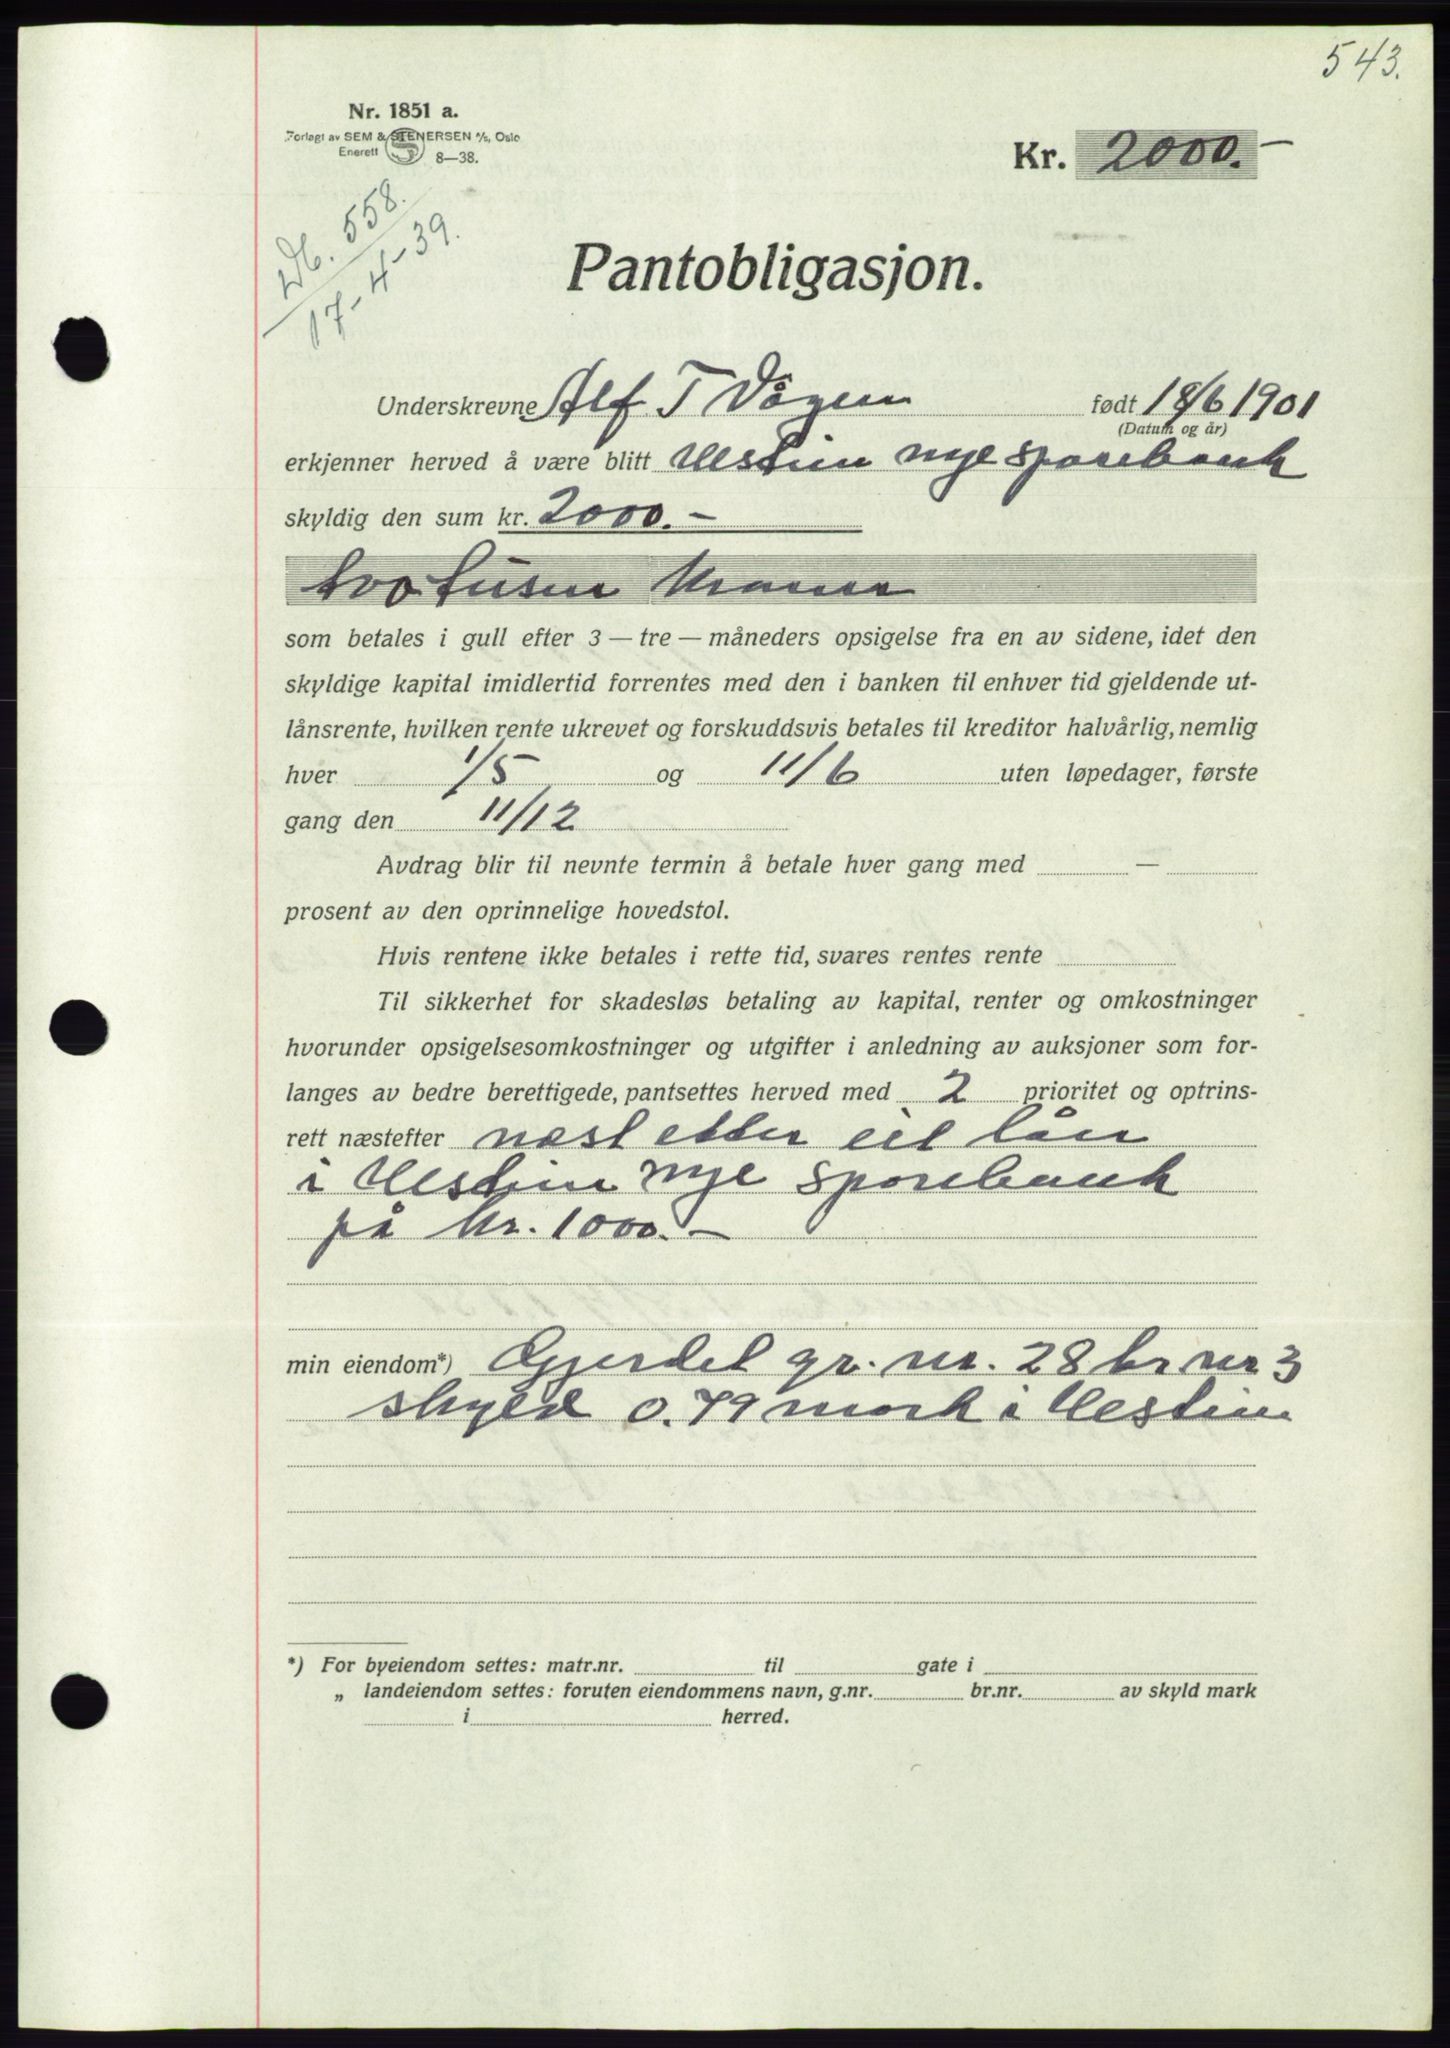 543.
Nr. 1851 a.
Forlagt av SEM & STENERSEN A/S, Oslo
Enerett S 8—38.
Kr. 2000.-
Db. 558.
17-4-39.
Pantobligasjon.
Underskrevne Alf T Vågen født 18/6 1901
(Datum og år)
erkjenner herved å være blitt Vestnes nye sparebank
skyldig den sum kr. 2000.-
tvo tusen kroner
som betales i gull efter 3 — tre — måneders opsigelse fra en av sidene, idet den
skyldige kapital imidlertid forrentes med den i banken til enhver tid gjeldende ut-
lånsrente, hvilken rente ukrevet og forskuddsvis betales til kreditor halvårlig, nemlig
hver 1/5 og 11/6 uten løpedager, første
gang den 11/12
Avdrag blir til nevnte termin å betale hver gang med —
prosent av den oprinnelige hovedstol.
Hvis rentene ikke betales i rette tid, svares rentes rente
Til sikkerhet for skadesløs betaling av kapital, renter og omkostninger
hvorunder opsigelsesomkostninger og utgifter i anledning av auksjoner som for-
langes av bedre berettigede, pantsettes herved med 2 prioritet og optrins-
rett næstefter næst etter eit lån
i Vestnes nye sparebank
på kr. 1000.-
min eiendom*) Gjerdet gr. nr. 28 br nr 3
skyld 0.79 mark i Vestnes
*) For byeiendom settes: matr.nr. til gate i
„ landeiendom settes: foruten eiendommens navn, g.nr. br.nr. av skyld mark
i herred.